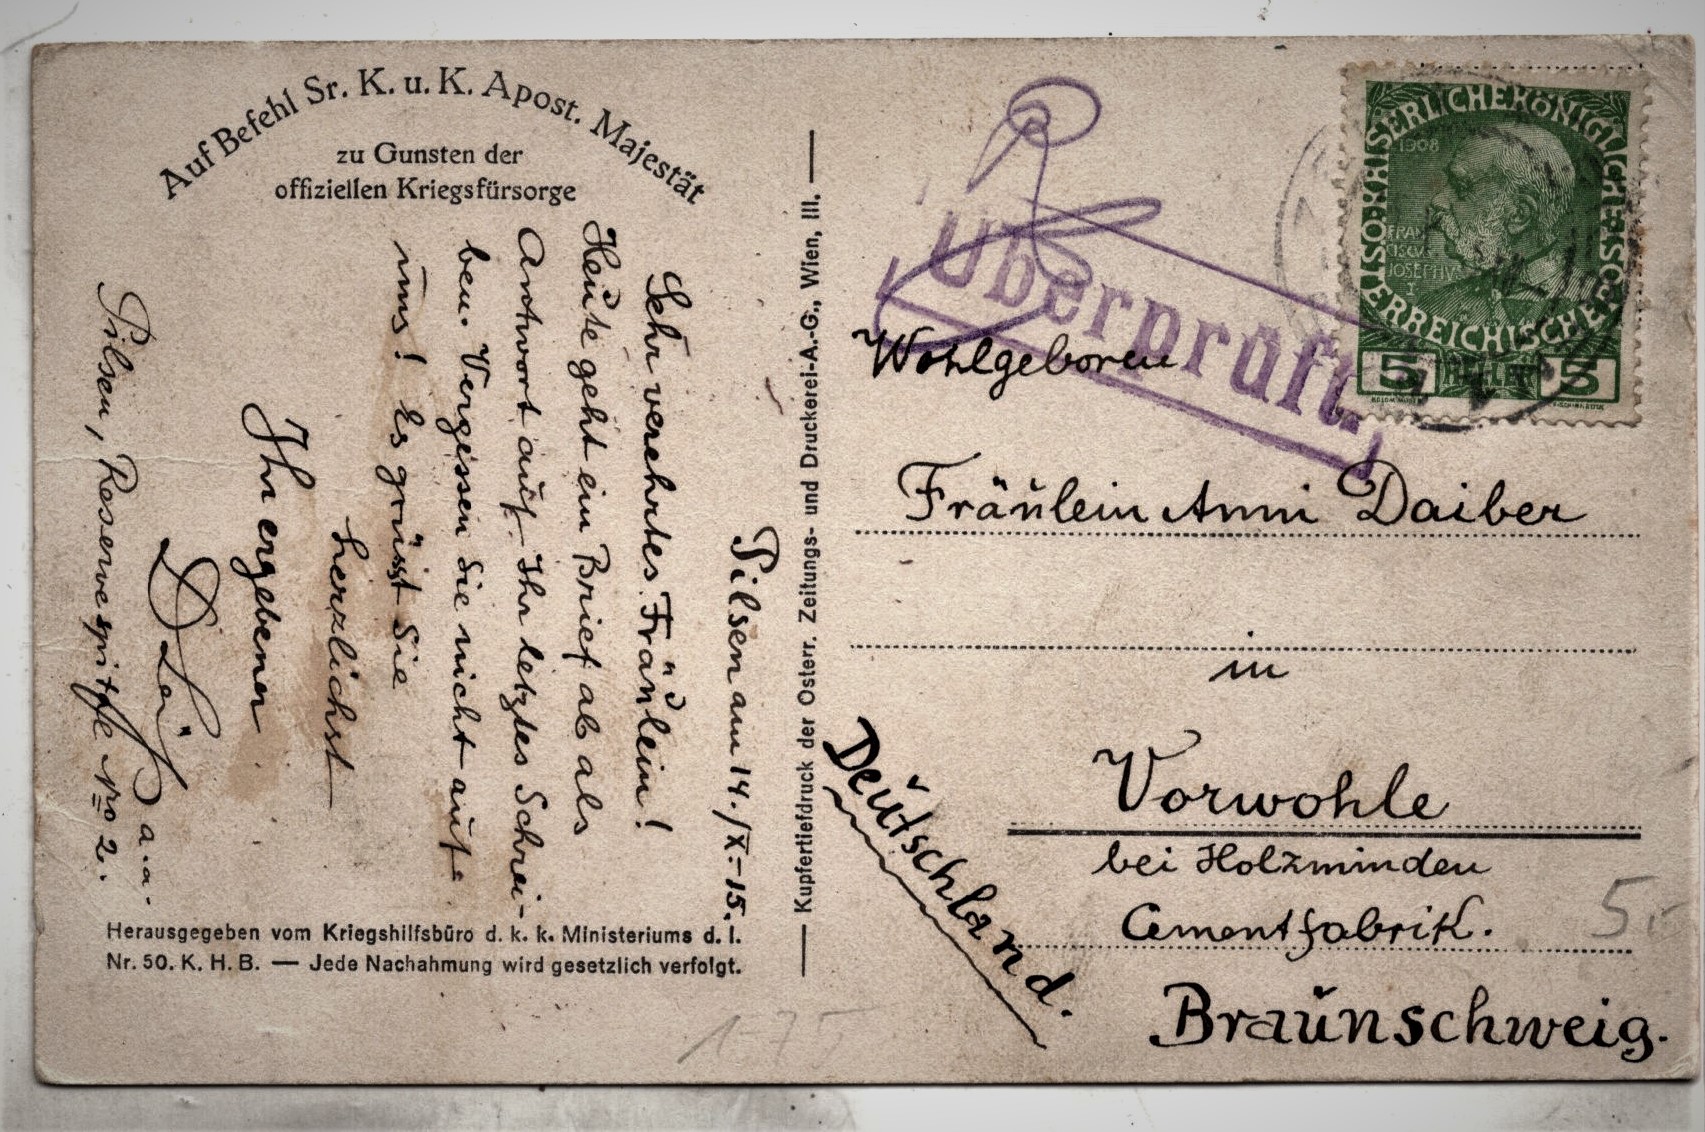 Auf Befehl Sr. K. u. K. Apost. Majestät
zu Gunsten der
offiziellen Kriegsfürsorge
Pilsen am 14./X.-15.
Sehr verehrtes Fräulein!
Heute geht ein Brief ab als
Antwort auf Ihr letztes Schrei-
ben. Vergessen Sie nicht auf
uns! Es grüsst Sie
herzlichst
Ihr ergebener
a.a.
Pilsen, Reservespital No 2.
Herausgegeben vom Kriegshilfsbüro d. k. k. Ministeriums d. I.
Nr. 50. K. H. B. — Jede Nachahmung wird gesetzlich verfolgt.
Kupfertiefdruck der Österr. Zeitungs- und Druckerei-A.-G., Wien, III.
Überprüft
KAISERLICHE KÖNIGLICHE ÖSTERREICHISCHE POST
1908
FRAN
CISCVS
JOSEPHVS
I
5 HELLER 5
Wohlgeboren
Fräulein Anni Daiber
in
Vorwohle
bei Holzminden
Cementfabrik.
Braunschweig.
Deutschland.
5,-
175